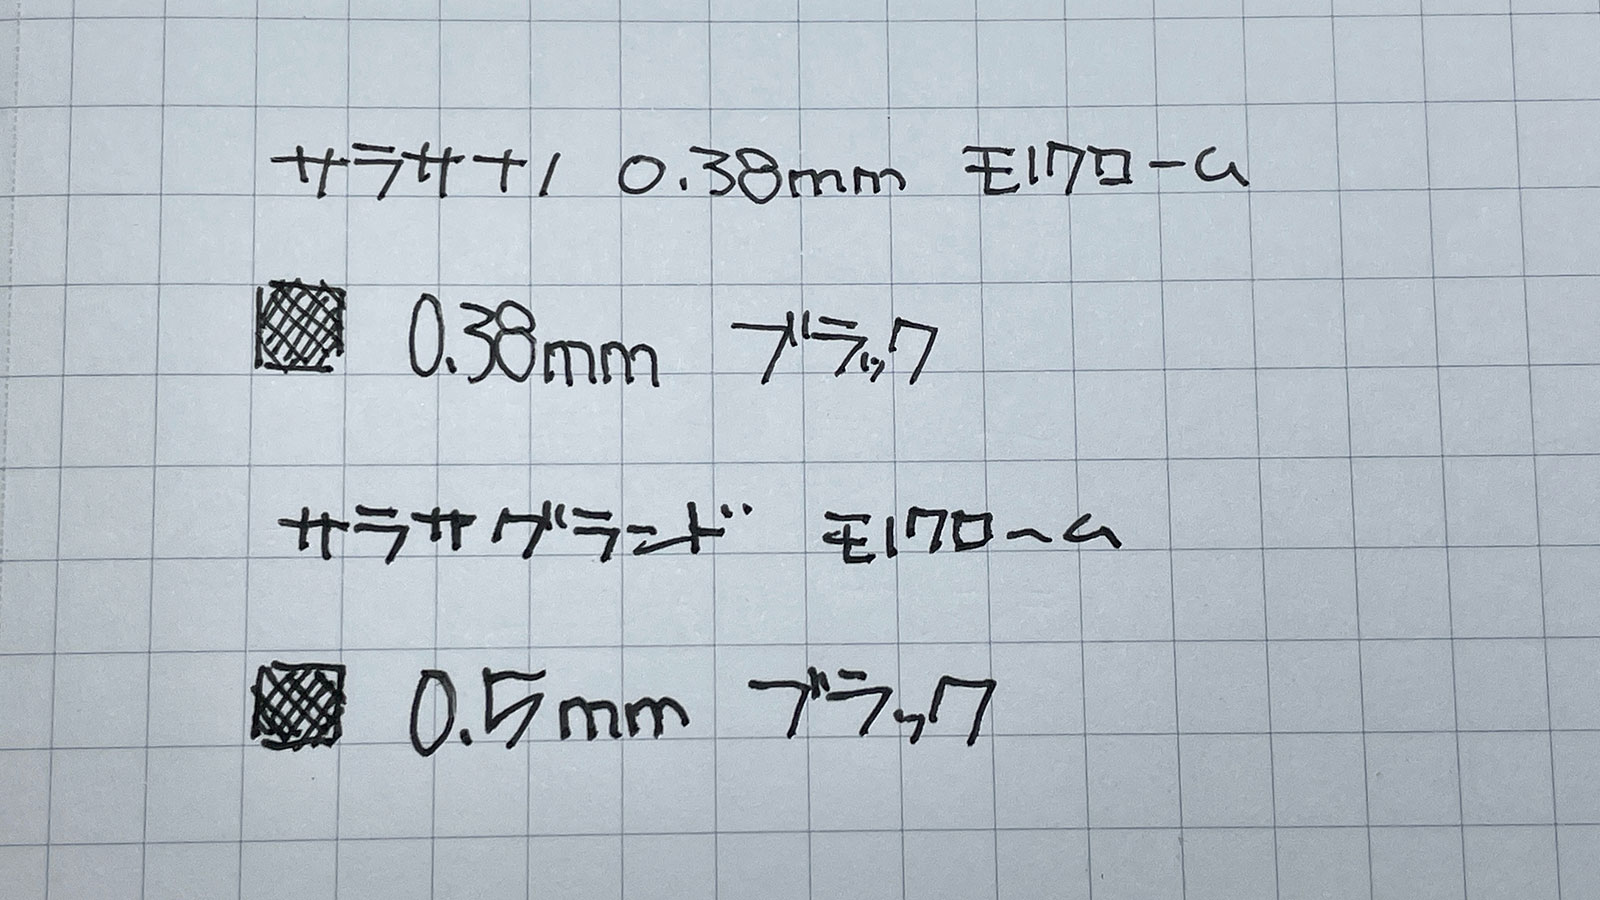 サラサナノ 0.38mm モノクローム
0.38mm ブラック
サラサグランド モノクローム
0.5mm ブラック